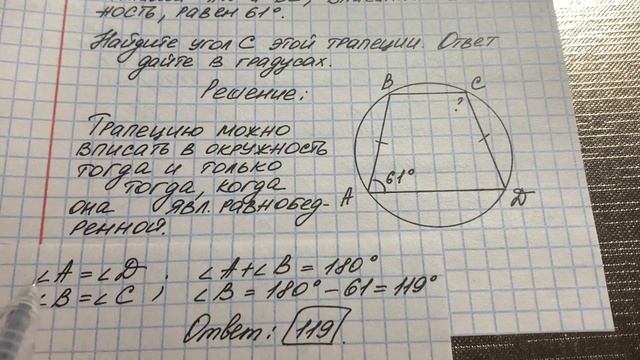 ность, равен 61°.
Найдите угол С этой трапеции. Ответ
дайте в градусах.
Решение:
Трапецию можно
вписать в окружность
тогда и только
тогда, когда
она явл. равнобед-
ренной.
B C
?
61°
A D
∠A = ∠D, ∠A + ∠B = 180°
∠B = ∠C, ∠B = 180° - 61 = 119°
Ответ: 119.